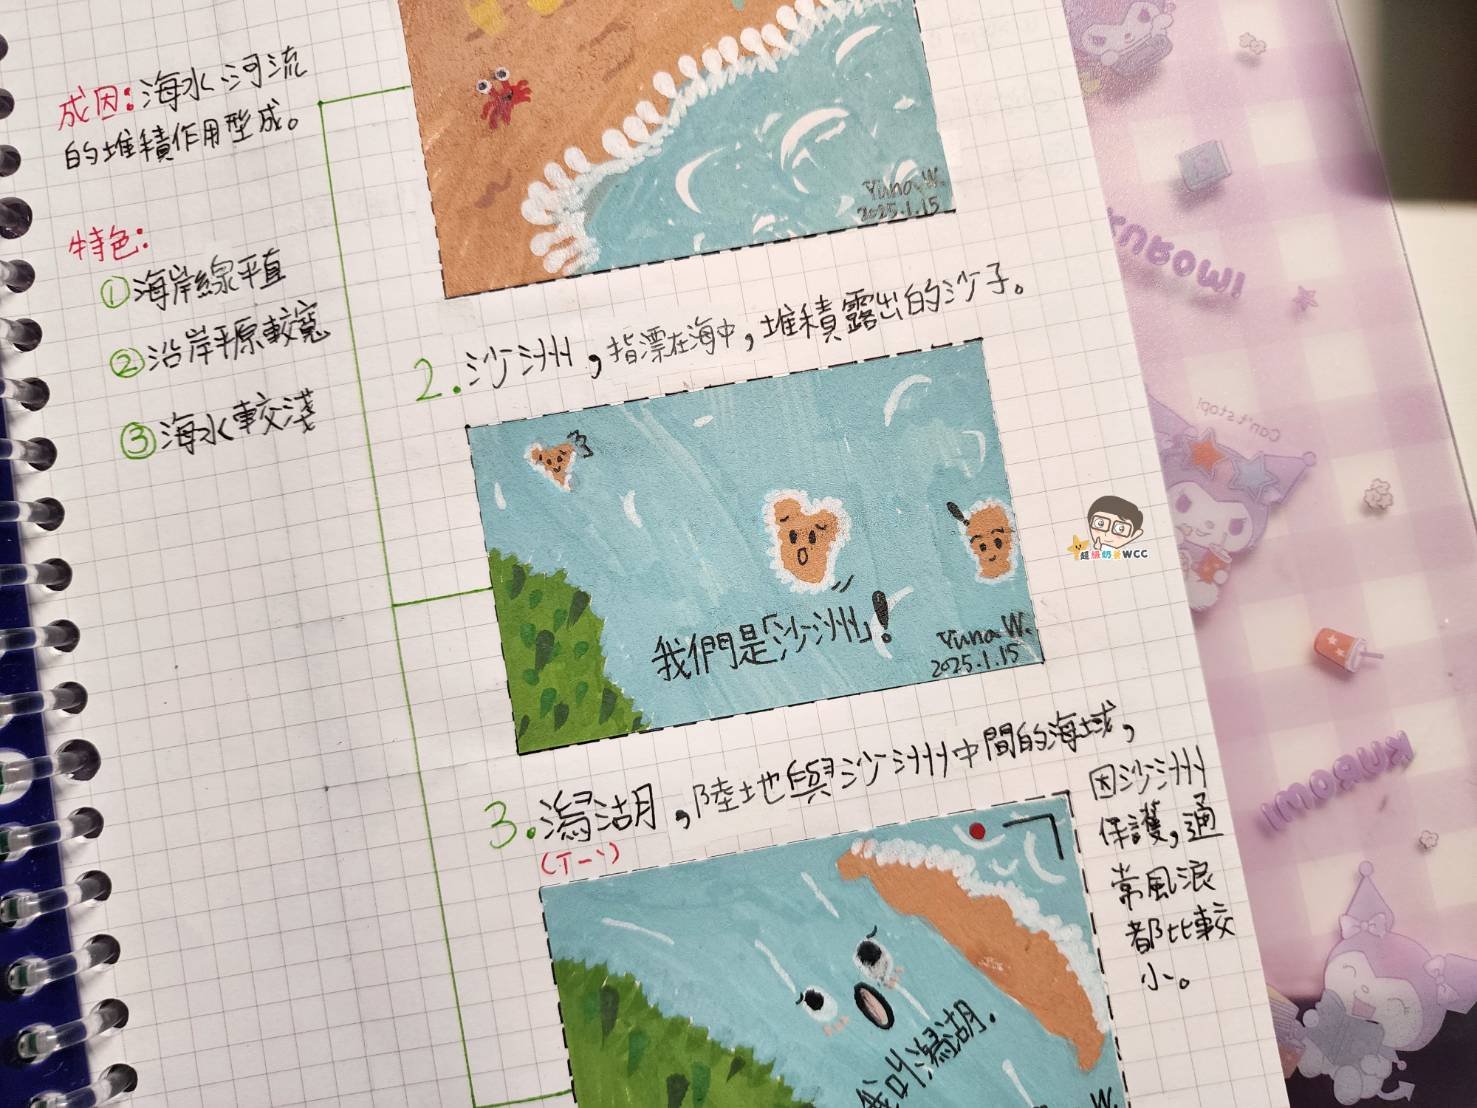 成因:海水、河流
的堆積作用型成。
特色:
①海岸線平直
②沿岸平原較寬
③海水較淺
Yuna.W.
2025.1.15
2.沙洲,指漂在海中,堆積露出的沙子。
我們是「沙洲」!
Yuna W.
2025.1.15
3.潟湖,陸地與沙洲中間的海域,
(Tㄧˋ)
因沙洲
保護,通
常風浪
都比較
小。
我叫潟湖.
W.
超級奶爸WCC
KUROMI
Can't stop!
KUROMI